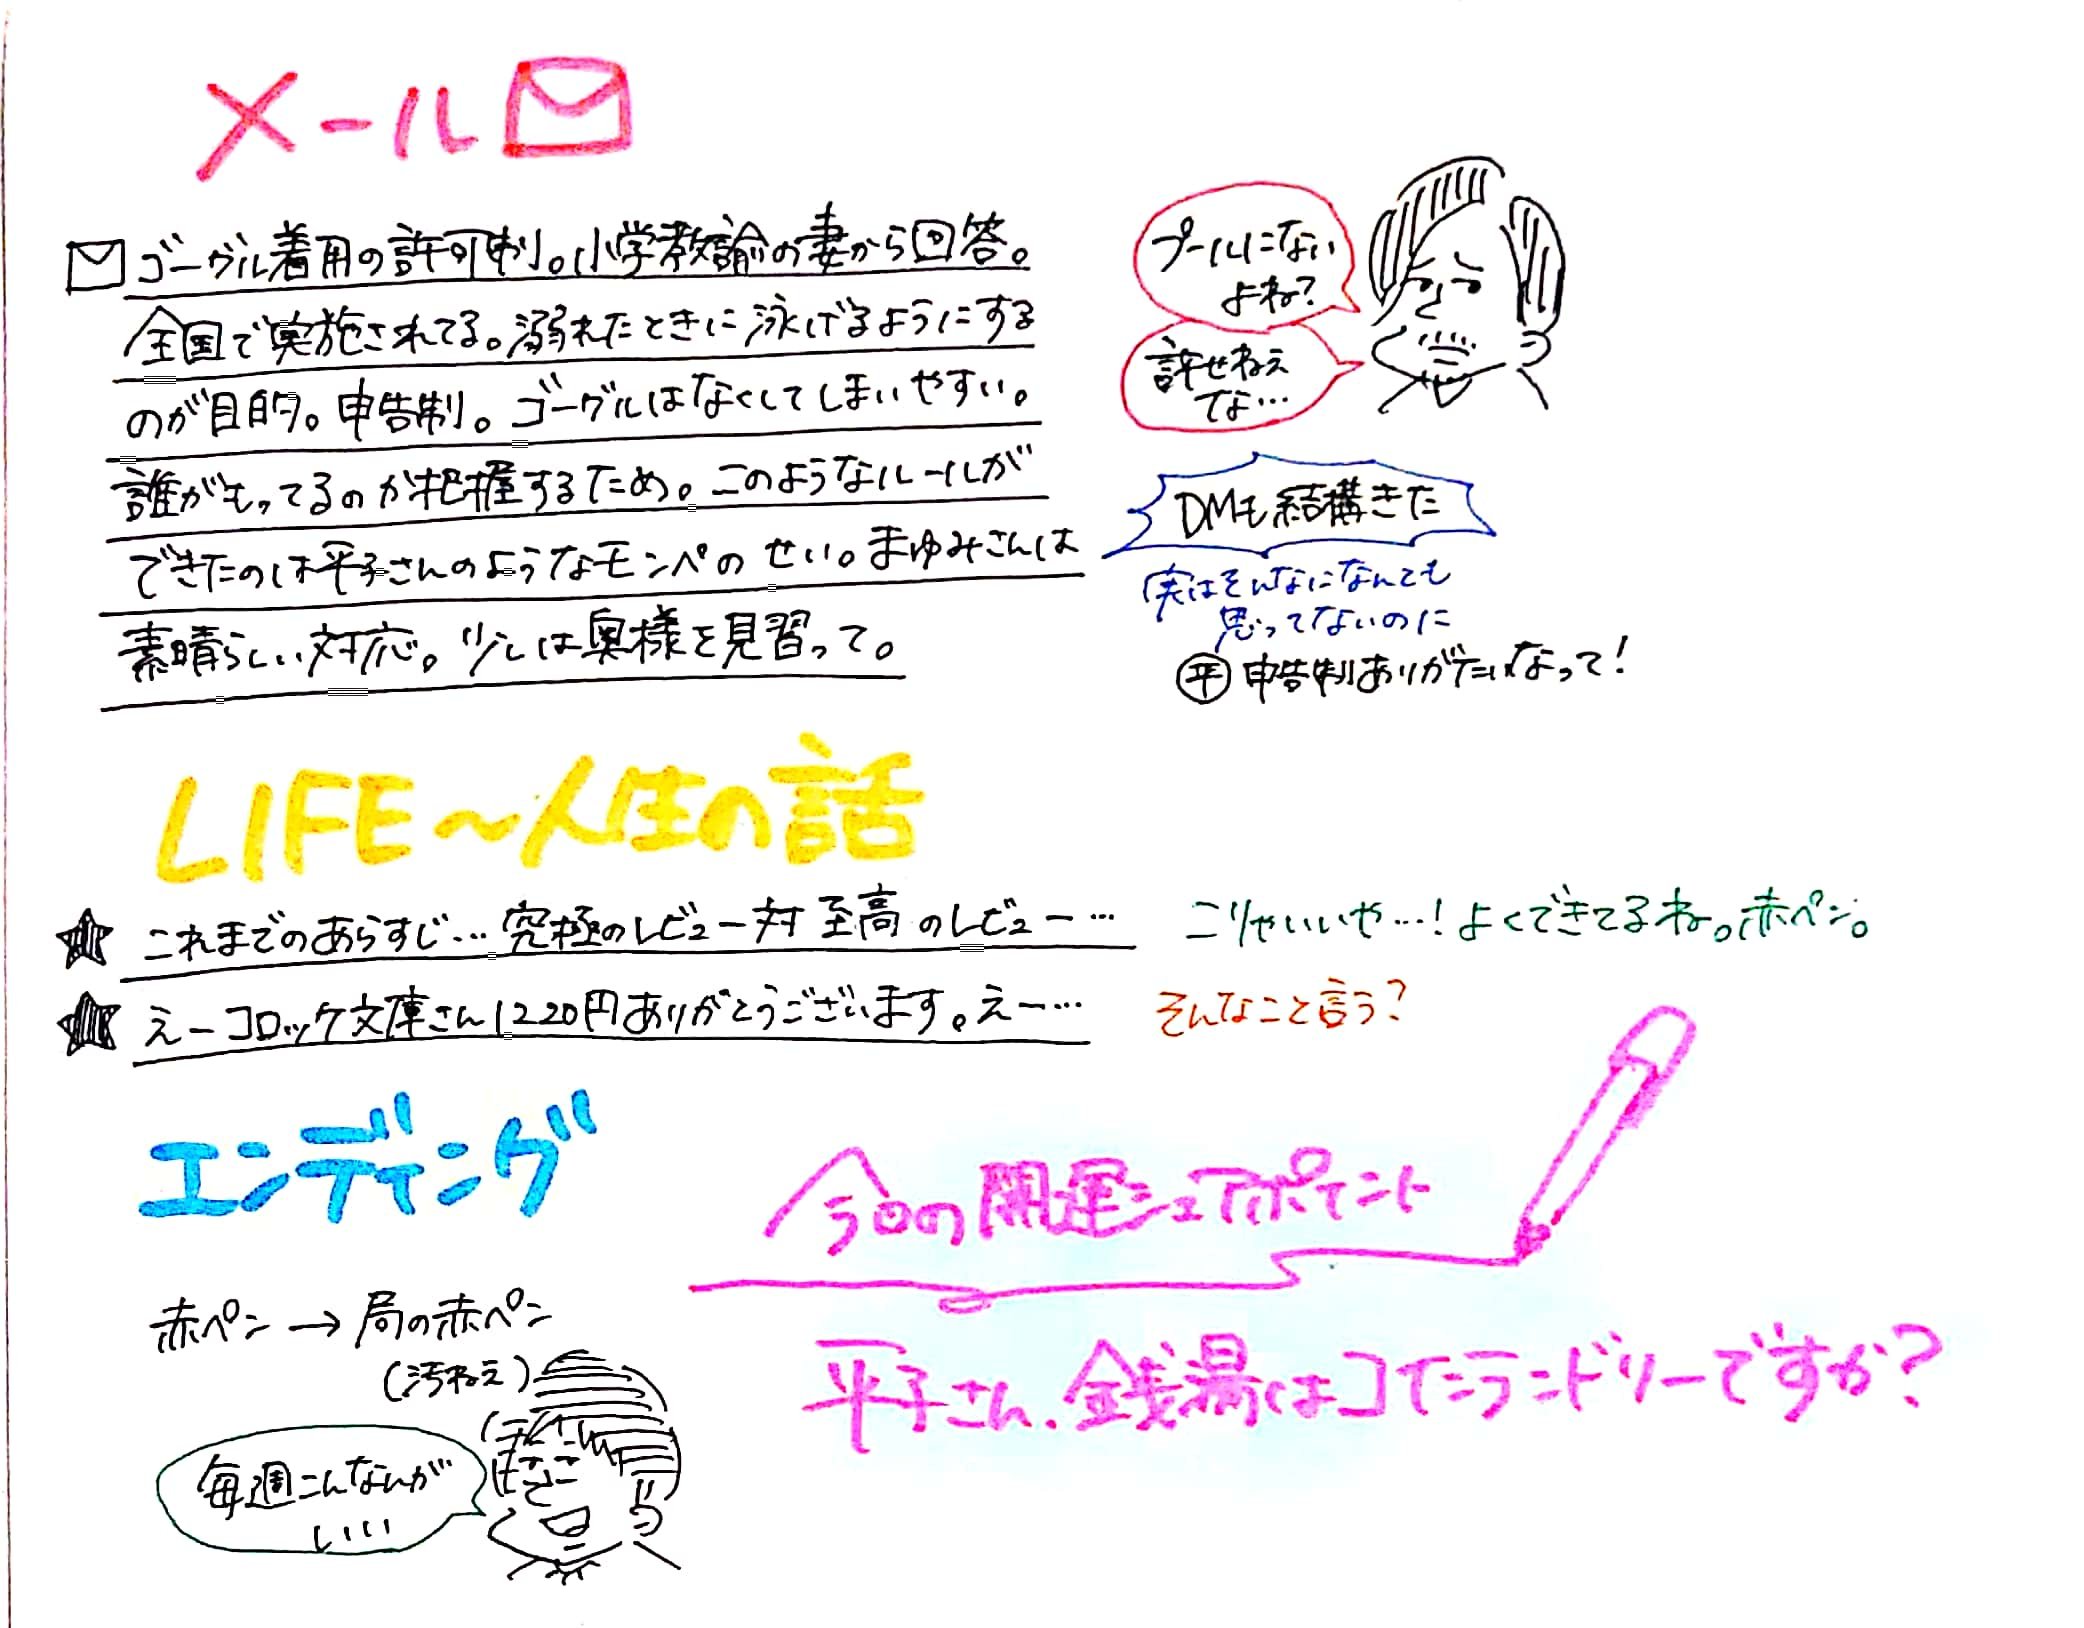 メール
ゴーグル着用の許可制。小学教諭の妻から回答。
全国で実施されてる。溺れたときに泳げるようにする
のが目的。申告制。ゴーグルはなくしてしまいやすい。
誰がもってるのか把握するため。このようなルールが
できたのは平子さんのようなモンペのせい。まゆみさんは
素晴らしい対応。少しは奥様を見習って。
プールにない
よね?
許せねえ
てな…
DMも結構きた
実はそんなになんとも
思ってないのに
平 申告制ありがたいなって!
LIFE〜人生の話
★ これまでのあらすじ…究極のレビュー対至高のレビュー…
こりゃいいや…!よくできてるね。赤ペン。
★ えーコロッケ文庫さん1220円ありがとうございます。えー…
そんなこと言う?
エンディング
赤ペン→局の赤ペン
(汚ねえ)
毎週こんなんが
いい
今日の開運シェアポイント
平子さん、銭湯はコインランドリーですか?